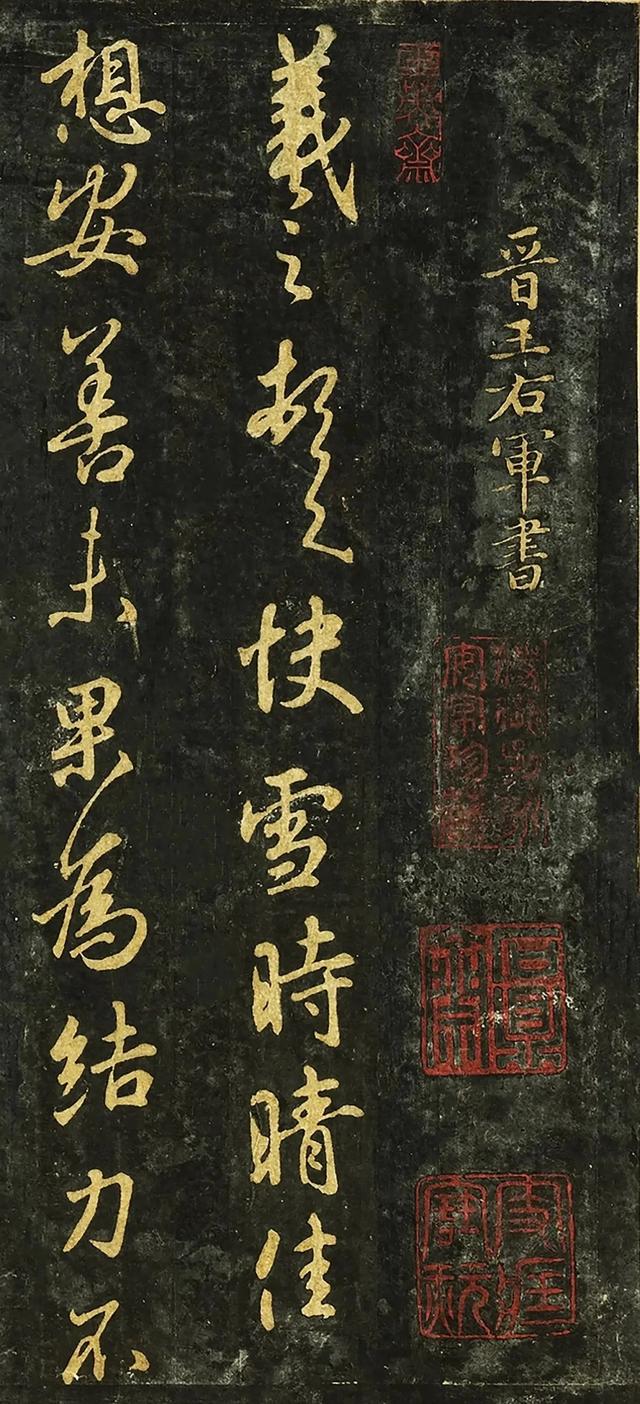 晋王右軍書
羲之頓首快雪時晴佳
想安善未果為結力不